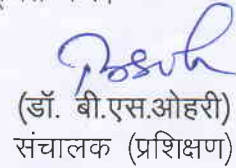 (डॉ. बी.एस.ओहरी)
संचालक (प्रशिक्षण)